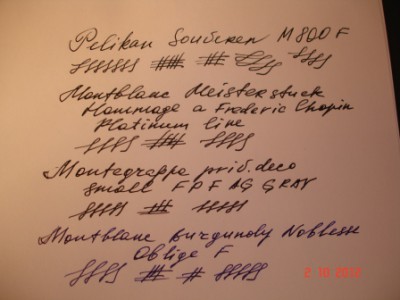 Pelikan Souveren M 800 F
Montblanc Meisterstuck
Hommage a Frederic Chopin
Platinum line
Montegrappa priv. deco
small F P F AG GRAV
Montblanc Burgundy Noblesse
Oblige F